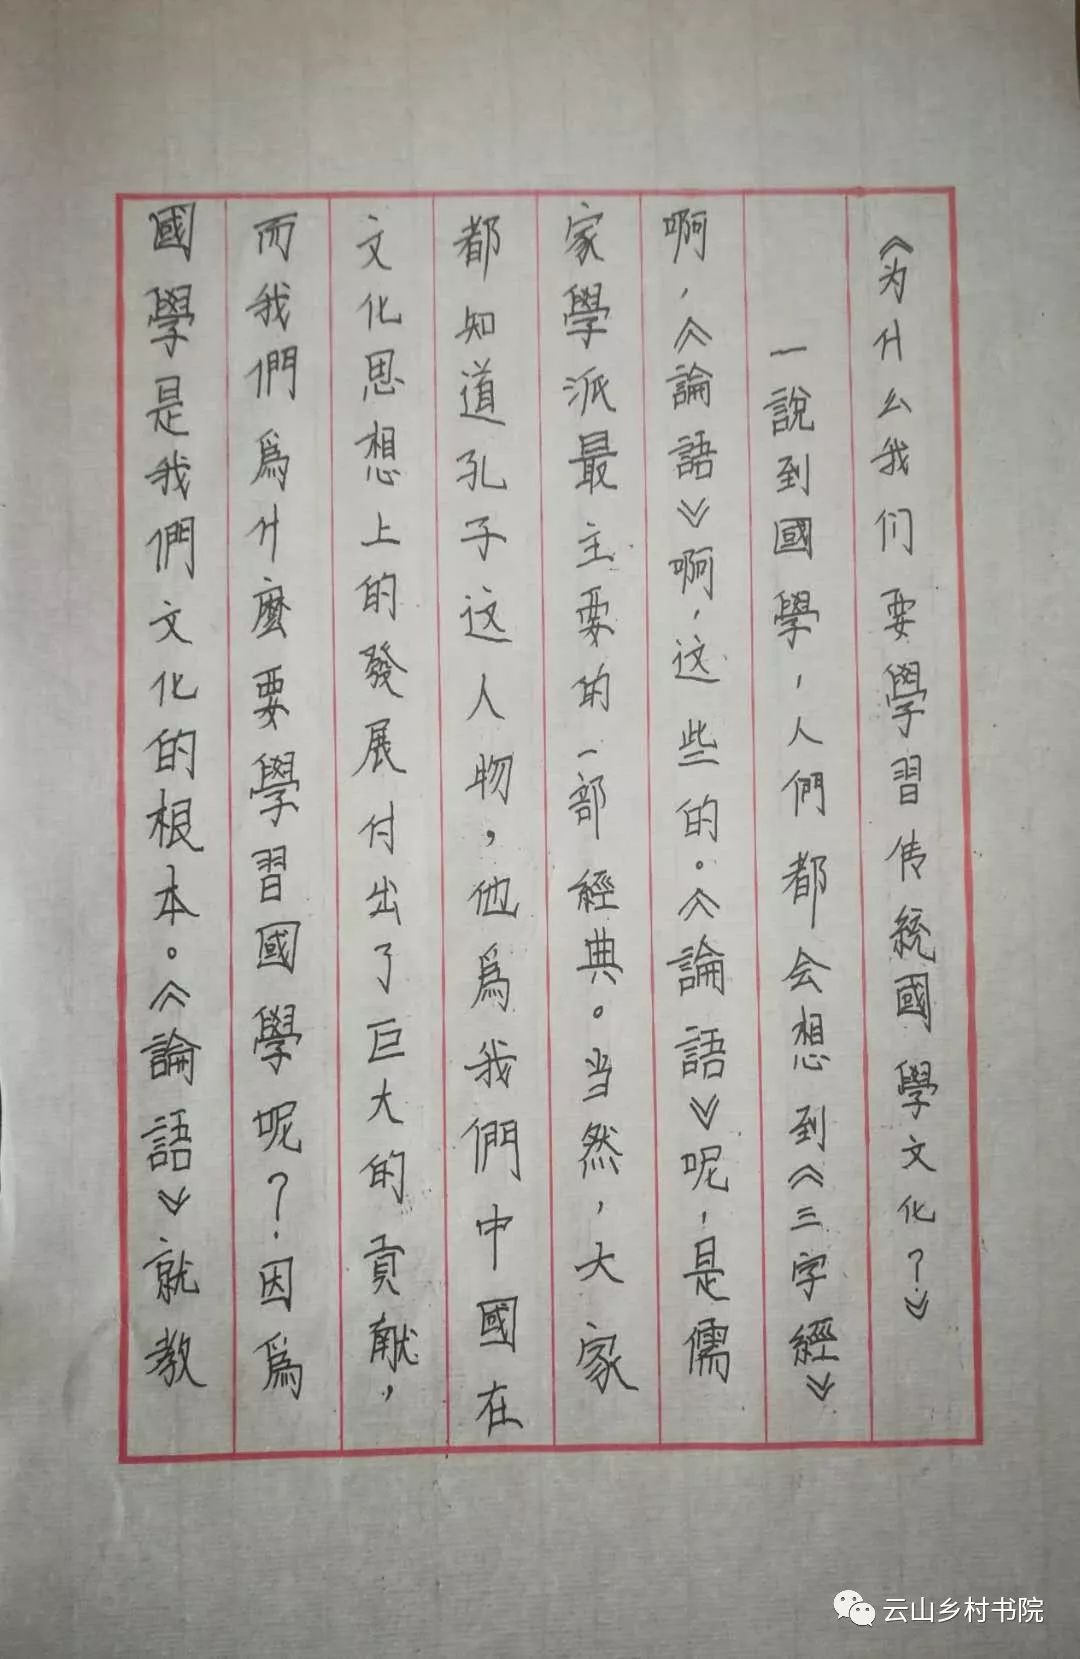 《为什么我们要學習传統國學文化？》
一說到國學，人們都会想到《三字經》
啊，《論語》啊，这些的。《論語》呢，是儒
家學派最主要的一部經典。当然，大家
都知道孔子这人物，他爲我們中國在
文化思想上的發展付出了巨大的貢献，
而我們爲什麼要學習國學呢？因爲
國學是我們文化的根本。《論語》就教
云山乡村书院